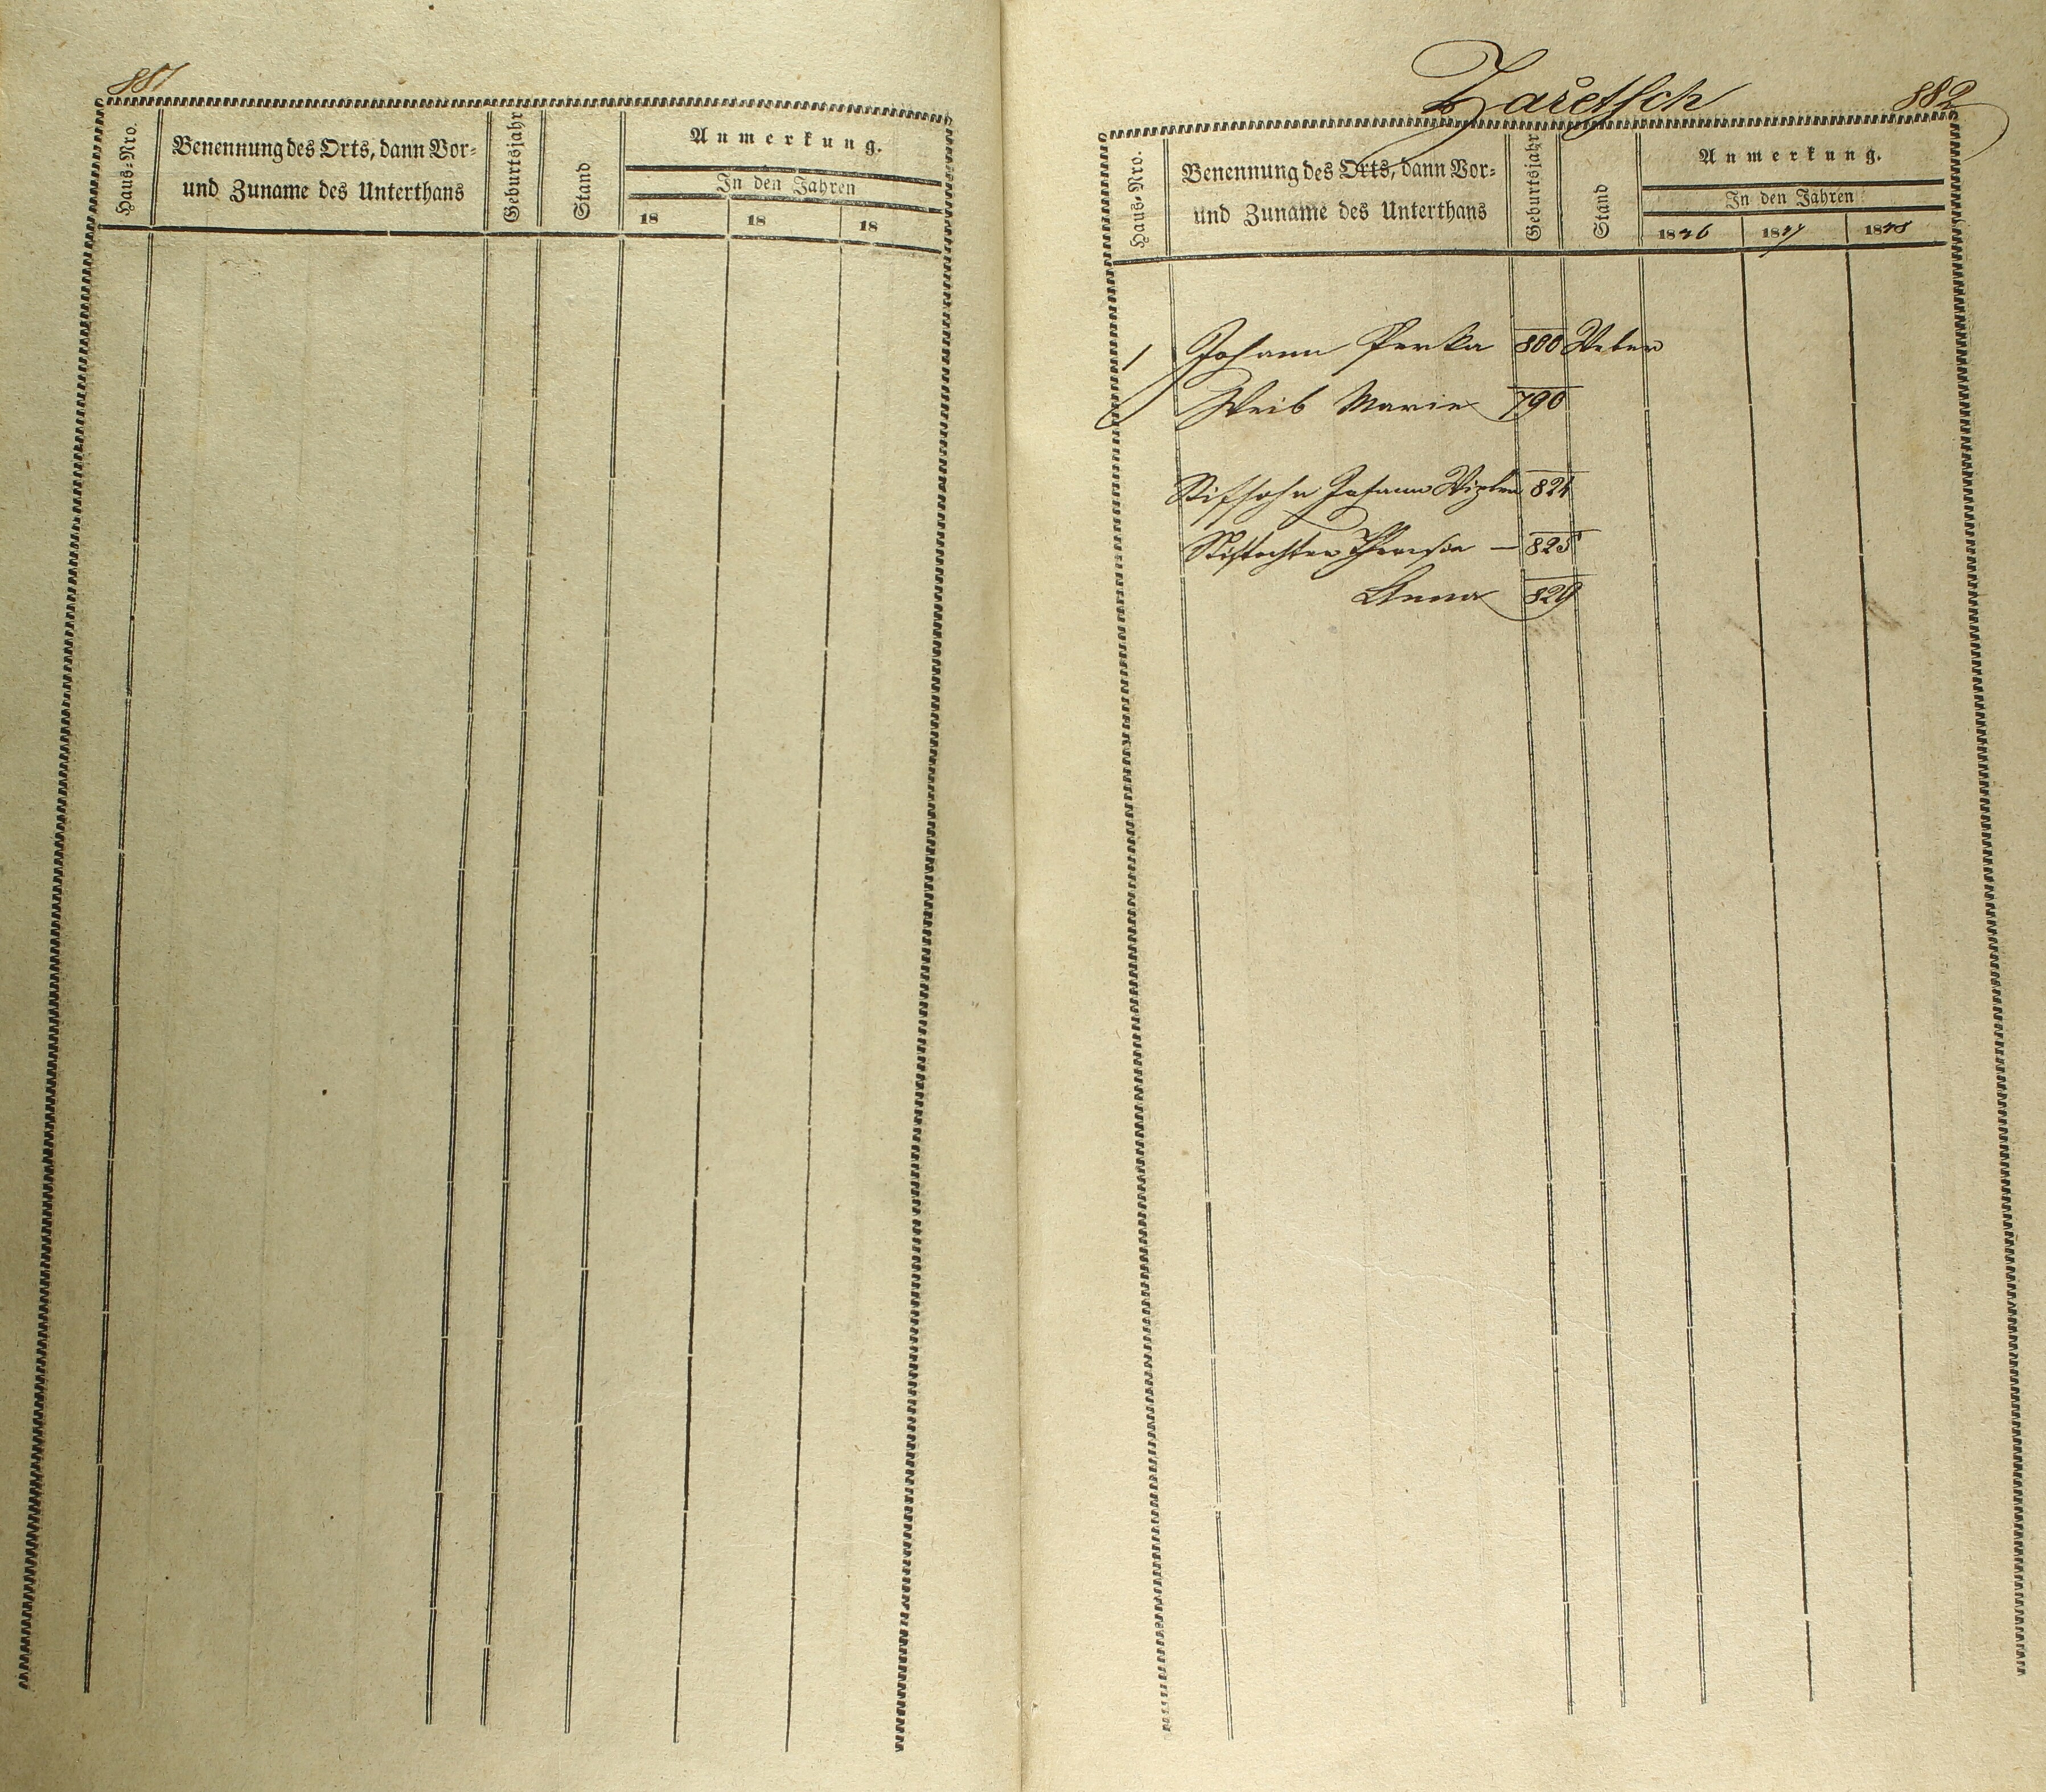 881
Haus-Nro.
Benennung des Orts, dann Vor-
und Zuname des Unterthans
Geburtsjahr
Stand
Anmerkung.
In den Jahren
18 18 18
Zařetsch 882
Haus-Nro.
Benennung des Orts, dann Vor-
und Zuname des Unterthans
Geburtsjahr
Stand
Anmerkung.
In den Jahren
1846 1847 1848
1 Johann Perka 800 Weber
Weib Marie 790
Stifsohn Johann 824
Stiftochter Theresia — 825
Anna 829